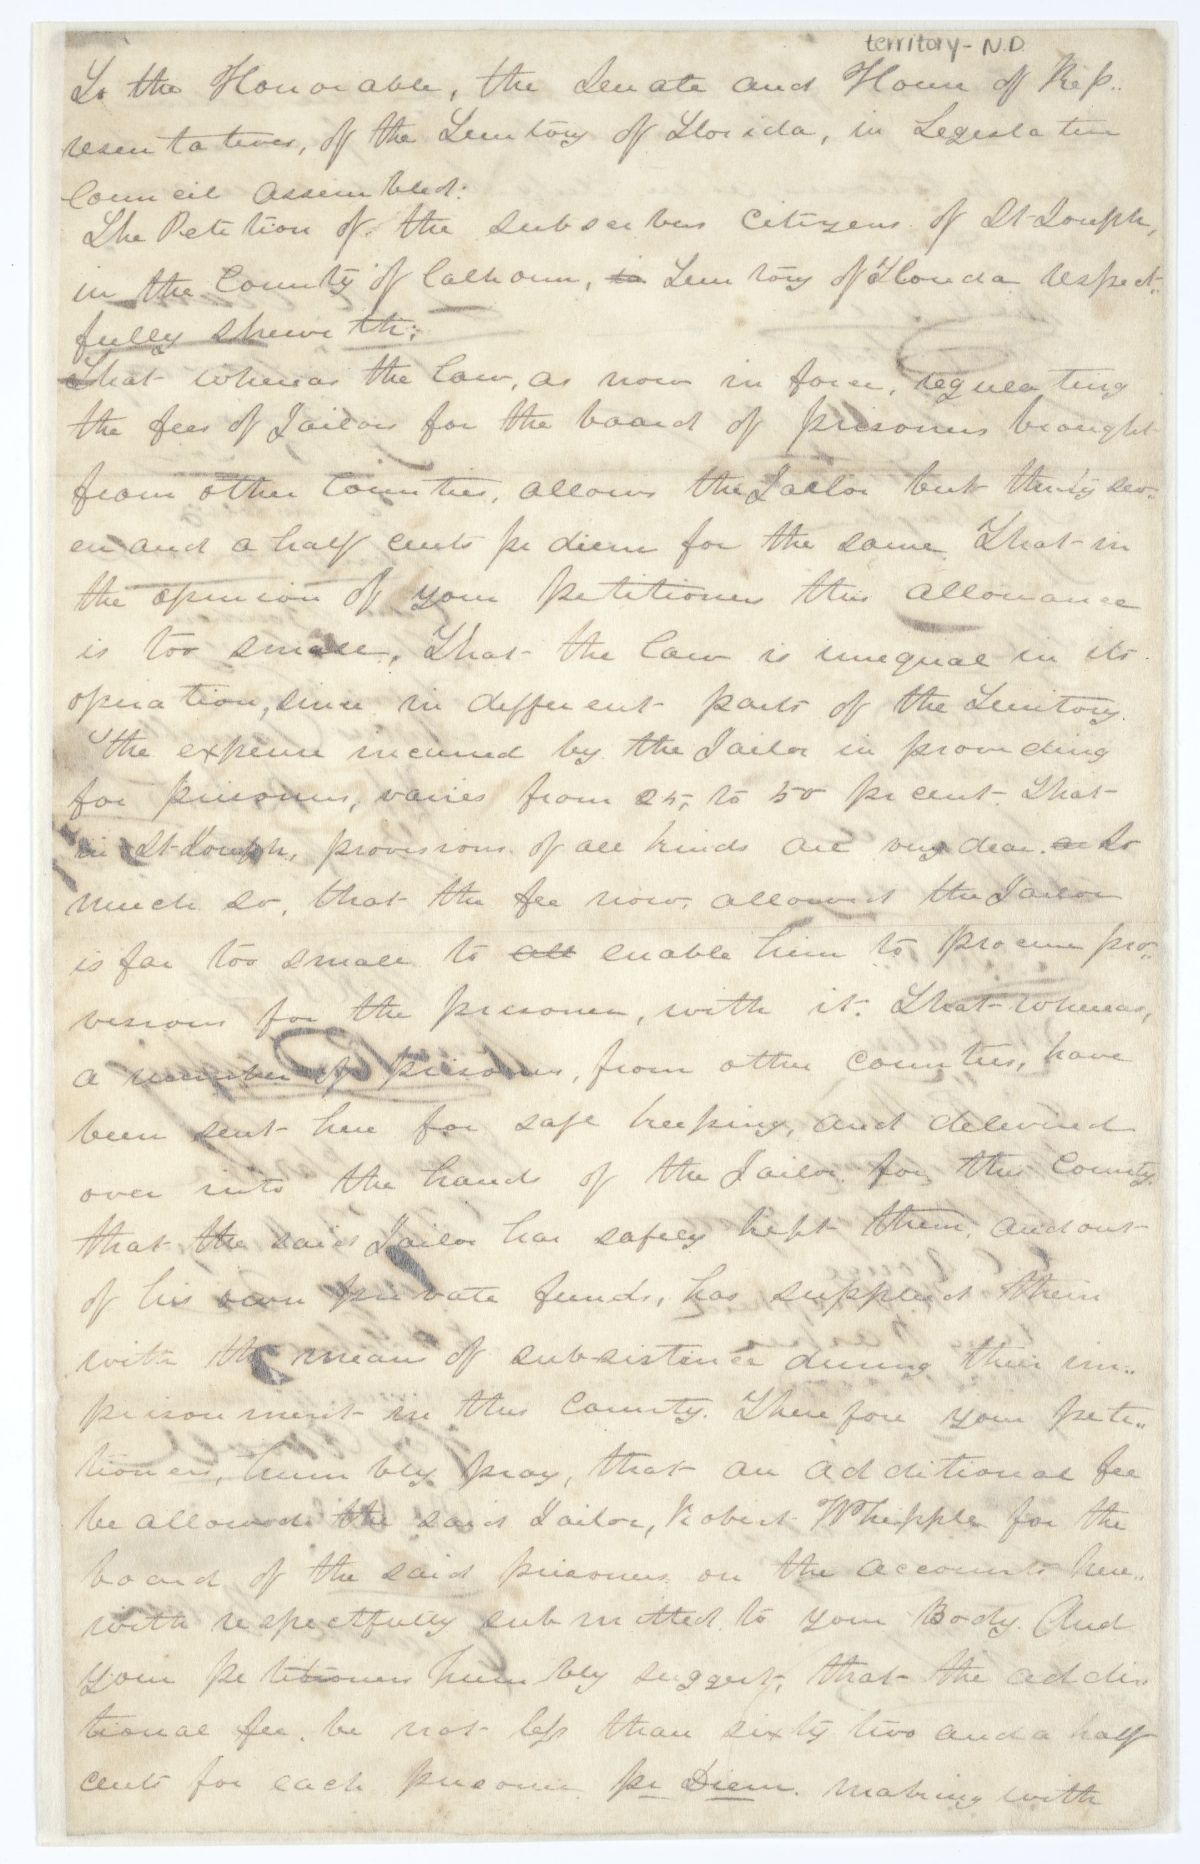 territory - N.D.
To the Honorable, the Senate and House of Rep..
resentatives, of the Territory of Florida, in Legislative
Council assembled:
The Petition of the subscribers citizens of St Joseph,
in the County of Calhoun, in Territory of Florida respect..
fully sheweth;
That whereas the law, as now in force, regulating
the fees of Jailors for the board of prisoners brought
from other Counties, allows the Jailor but thirty sev..
en and a half cents pr diem for the same. That in
the opinion of your petitioners this allowance
is too small, That the law is unequal in its
operation, since in different parts of the Territory
the expense incurred by the Jailor in providing
for prisoners, varies from 25, to 50 pr cent. That
in St Joseph, provisions of all kinds are very dear. So
much so, that the fee now allowed the Jailor
is far too small to enable him to procure pro..
visions for the prisoners, with it. That whereas,
a number of prisoners, from other counties, have
been sent here for safe keeping, and delivered
over into the hands of the Jailor for this County
that the said Jailor has safely kept them, and out
of his own private funds, has supplied them
with the means of subsistence during their im..
prisonment in this County. Therefore your peti..
tioners, humbly pray, that an additional fee
be allowed the said Jailor, Robert Whipple for the
board of the said prisoners on the accounts here..
with respectfully submitted to your Body. And
your petitioners humbly suggest, that the addi..
tional fee be not less than sixty two and a half
cents for each prisoner pr Diem. making with